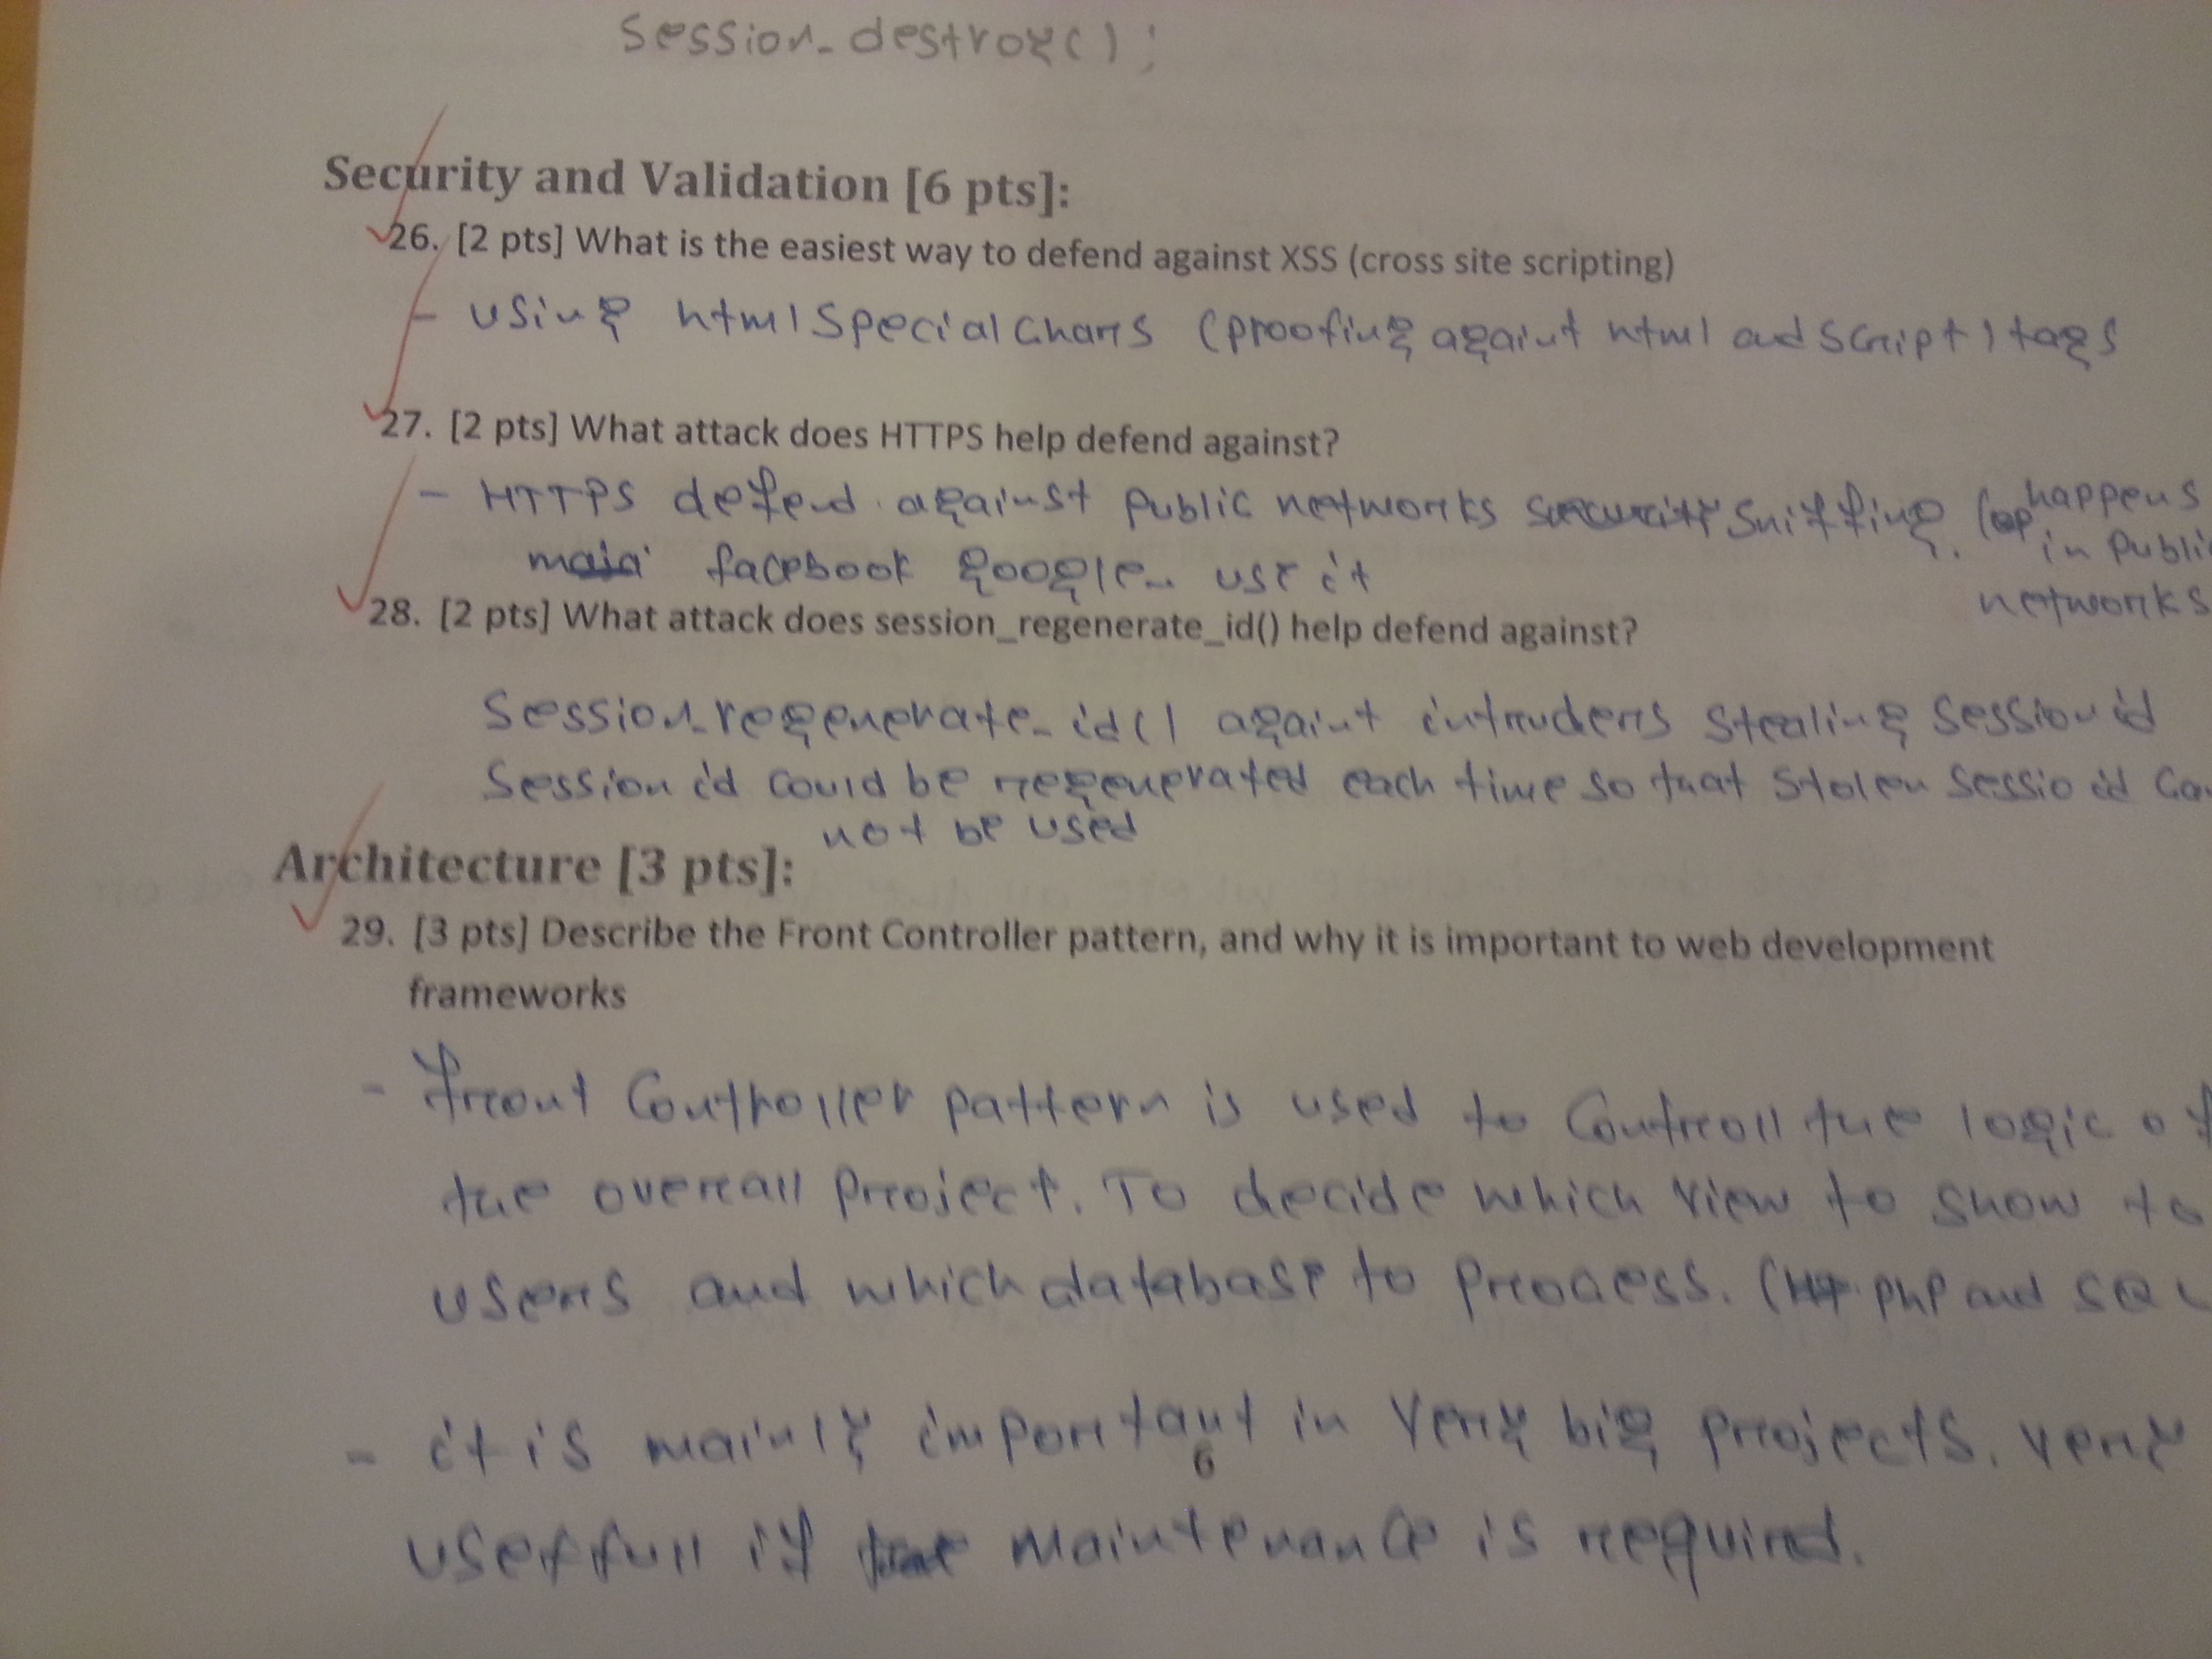 Session_destroy();
Security and Validation [6 pts]:
26. [2 pts] What is the easiest way to defend against XSS (cross site scripting)
- using htmlSpecialChars (proofing againt html and script) tags
27. [2 pts] What attack does HTTPS help defend against?
- HTTPS defend against public networks sniffing. (happens
facebook google.. use it in public
networks
28. [2 pts] What attack does session_regenerate_id() help defend against?
Session_regenerate_id() againt intruders stealing session id
Session id could be regenerated each time so that stolen sessio id can
not be used
Architecture [3 pts]:
29. [3 pts] Describe the Front Controller pattern, and why it is important to web development
frameworks
- front Controller pattern is used to Controll the logic of
the overall project. To decide which view to show to
users and which database to process. (php and SQL
- it is mainly important in very big projects. very
6
usefull if the maintenance is required.